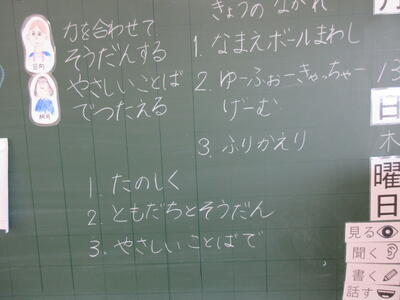 力を合わせて
そうだんする
やさしいことば
でつたえる
きょうの ながれ
1. なまえボールまわし
2. ゆーふぉーきゃっちゃー
げーむ
3. ふりかえり
1. たのしく
2. ともだちとそうだん
3. やさしいことばで
月
13
日
木
曜
日
見る
聞く
書く
話す